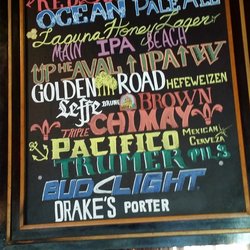 OCEAN PALE ALE
Laguna Honey Lager
MAIN IPA BEACH
UPHEAVAL IPA W
GOLDEN ROAD HEFEWEIZEN
Leffe BLONDE BROWN
TRIPLE CHIMAY
PACIFICO MEXICAN CERVEZA
TRUMER PILS
BUD LIGHT
DRAKE'S PORTER